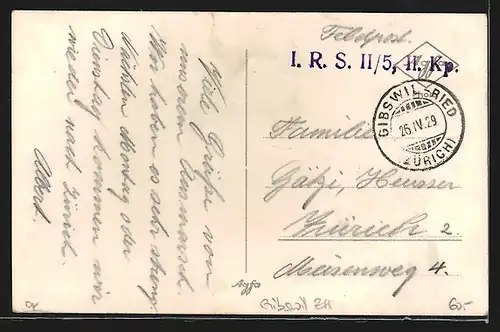 Feldpost.
I. R. S. II/5, II. Kp.
GIBSWIL-RIED
26.IV.29
(ZÜRICH)
Viele Grüsse von
unserm Ausmarsch.
Wir haben es sehr streng.
Nächsten Montag oder
Dienstag kommen wir
wieder nach Zürich.
Albert.
Familie
Götzi, Heusser
Zürich 2.
Meisenweg 4.
Agfa
Gibswil ZH
60.-